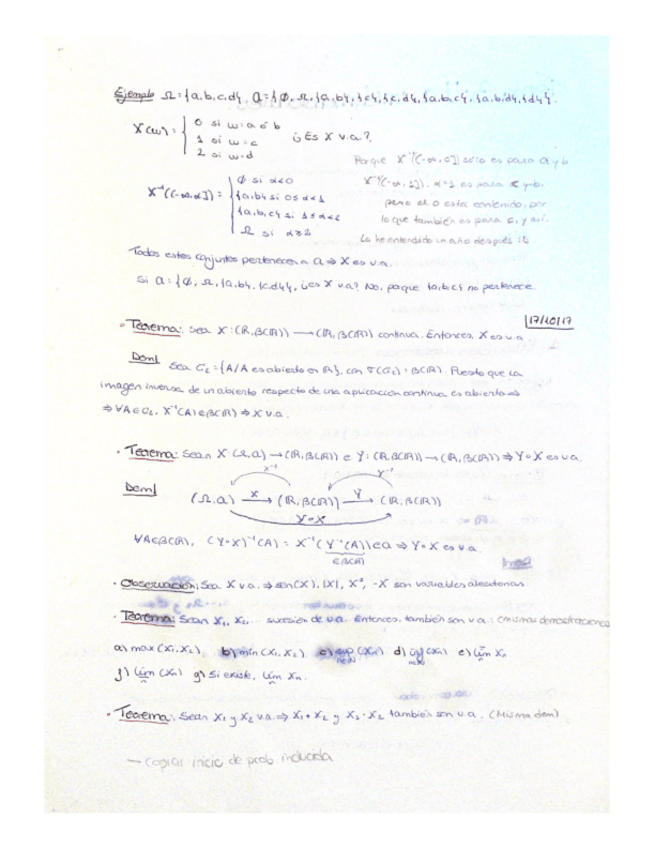 Ejemplo Ω={a,b,c,d}, a={∅, Ω, {a,b}, {c}, {c,d}, {a,b,c}, {a,b,d}, {d}}.
X(w) = { 0 si w=a ó b
1 si w=c
2 si w=d
¿Es X v.a?
Porque X⁻¹((-∞,0]) sólo es para a y b
X⁻¹((-∞,α]) = { ∅ si α<0
{a,b} si 0≤α<1
{a,b,c} si 1≤α<2
Ω si α≥2
X⁻¹((-∞,1]), α=1 es para c y b,
pero el 0 esta contenido, por
lo que también es para c, y así.
Lo he entendido un año después
Todos estos conjuntos pertenecen a a ⇒ X es v.a.
Si a={∅, Ω, {a,b}, {c,d}}, ¿es X v.a? No, porque {a,b,c} no pertenece.
17/10/17
• Teorema: Sea X:(ℝ,β(ℝ)) → (ℝ,β(ℝ)) continua. Entonces, X es v.a.
Dem| Sea C₂={A/A es abierto en ℝ}, con σ(C₂)=β(ℝ). Puesto que la
imagen inversa de un abierto respecto de una aplicación continua es abierta ⇒
⇒ ∀A∈C₂, X⁻¹(A)∈β(ℝ) ⇒ X v.a.
• Teorema: Sean X:(Ω,a) → (ℝ,β(ℝ)) e Y:(ℝ,β(ℝ)) → (ℝ,β(ℝ)) ⇒ Y∘X es v.a.
Dem|
X⁻¹ Y⁻¹
(Ω,a) X→ (ℝ,β(ℝ)) Y→ (ℝ,β(ℝ))
Y∘X
∀A∈β(ℝ), (Y∘X)⁻¹(A) = X⁻¹(Y⁻¹(A))∈a ⇒ Y∘X es v.a.
∈β(ℝ)
• Observación: Sea X v.a. ⇒ sen(X), |X|, X², -X son variables aleatorias
• Teorema: Sean X₁, X₂,... sucesión de v.a. Entonces, también son v.a.: (mismas demostraciones
a) max(X₁,X₂) b) min(X₁,X₂) c) sup (Xn) n∈ℕ d) inf (Xn) n∈ℕ e) lim Xn
f) lim (Xn) g) Si existe, lim Xn.
• Teorema: Sean X₁ y X₂ v.a. ⇒ X₁+X₂ y X₁·X₂ también son v.a. (Misma dem)
— copiar inicio de prob inducida